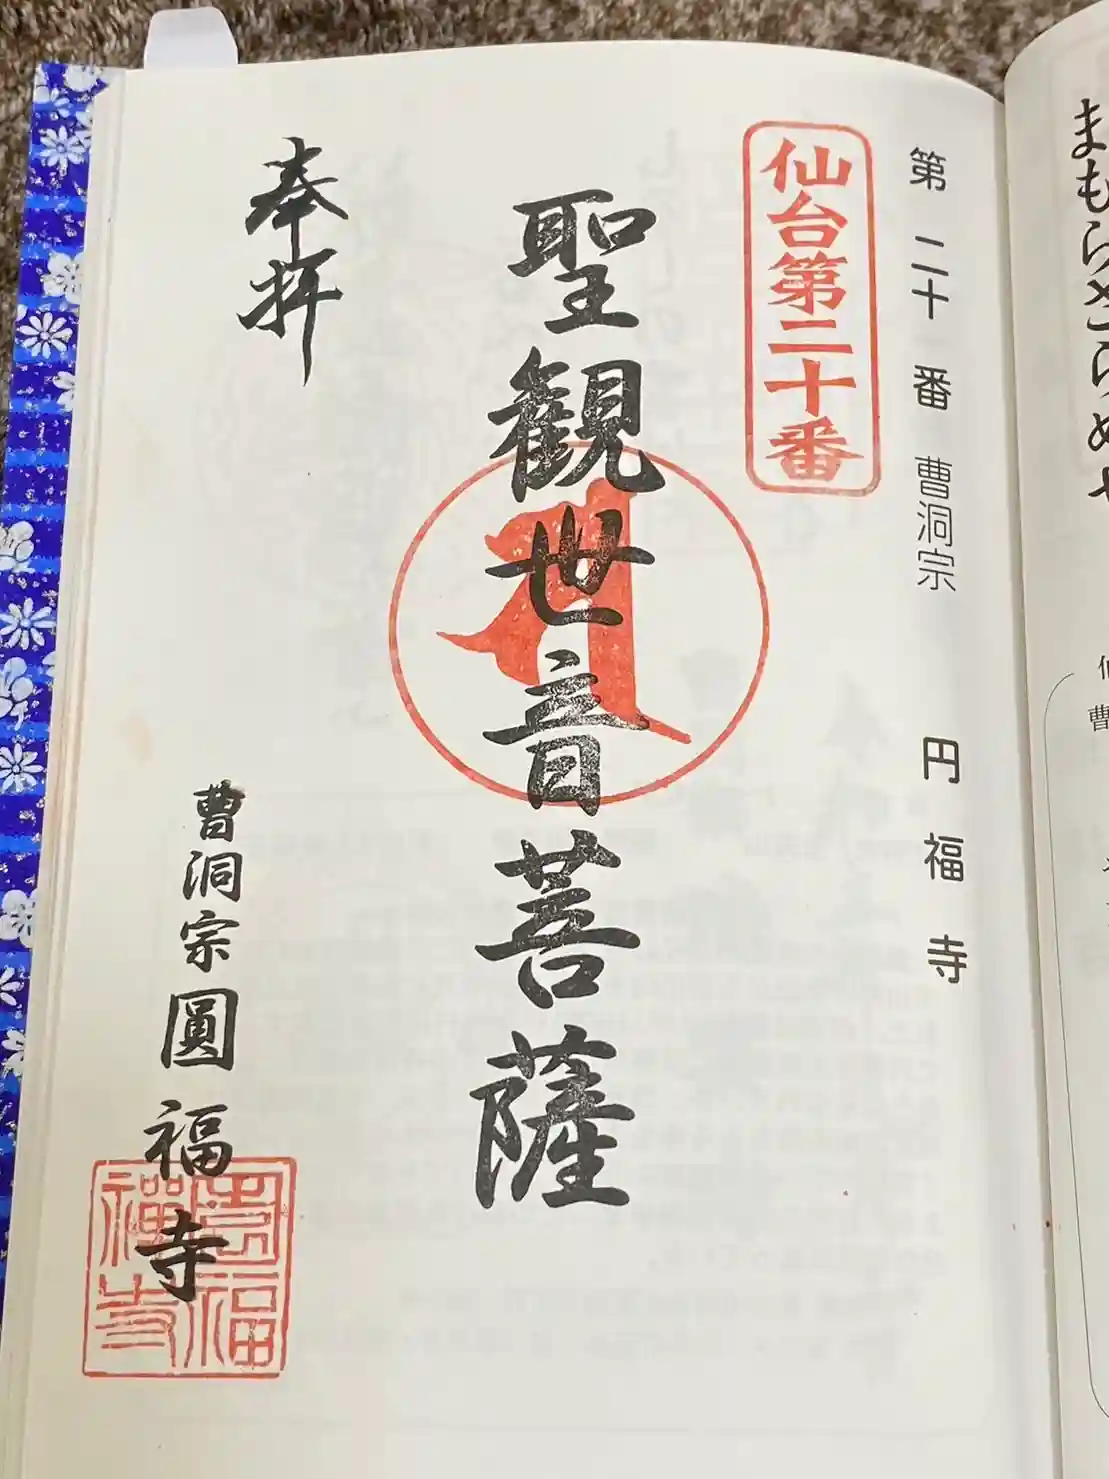 第二十番 曹洞宗 円福寺
仙台第二十番
聖観世音菩薩
奉拝
曹洞宗圓福寺
圓福
禅寺